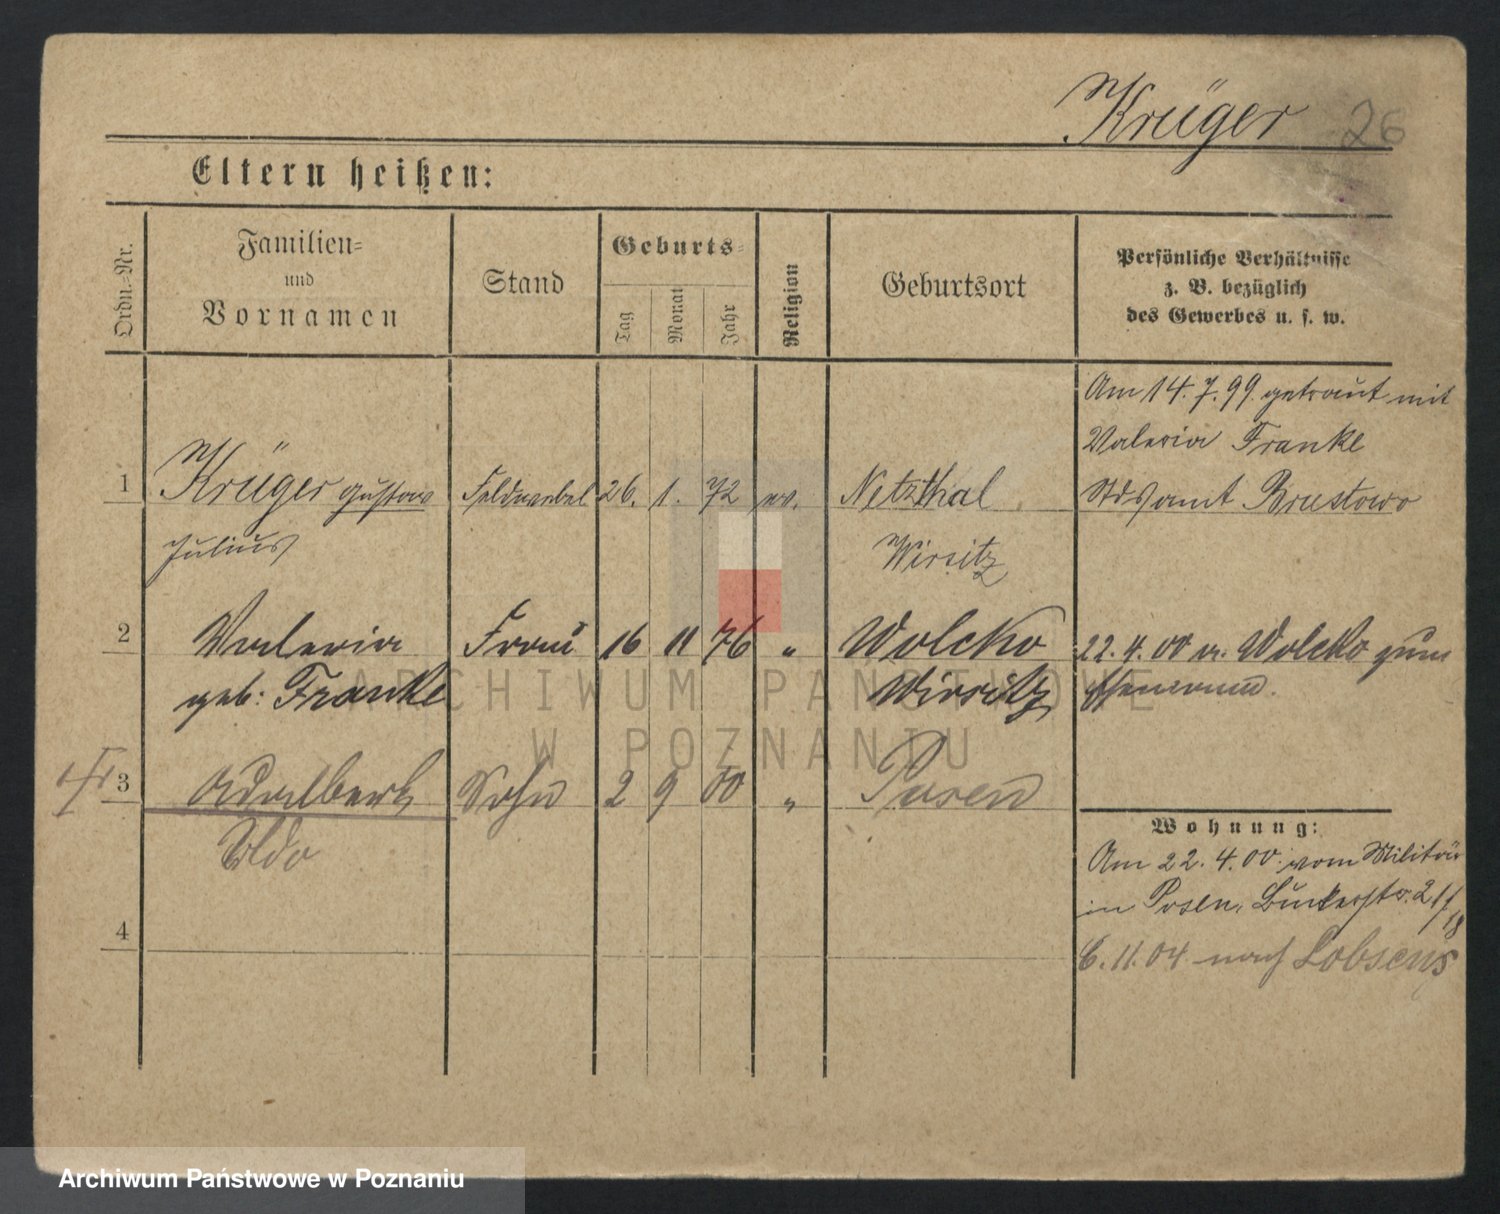 Krüger 26
Eltern heißen:
Ordn.-Nr.
Familien-
und
Vornamen
Stand
Geburts-
Tag
Monat
Jahr
Religion
Geburtsort
Persönliche Verhältnisse
z. B. bezüglich
des Gewerbes u. s. w.
Am 14.7.99. getraut mit
Valeria Franke
1 Krüger Gustav Feldwebel 26. 1. 72 ev. Netzthal Stdsamt Brustowo
Julius Wirsitz
2 Valeria Frau 16 11 76 " Wolcko 22.4.00 v. Wolcko zum
geb: Franke Wirsitz Ehemann.
3 Adalbert Sohn 2 9 00 " Posen
Udo
Wohnung:
Am 22.4.00. vom Militär
in Posen,
4
6.11.04 nach Lobsens
ARCHIWUM PAŃSTWOWE
W POZNANIU
Archiwum Państwowe w Poznaniu